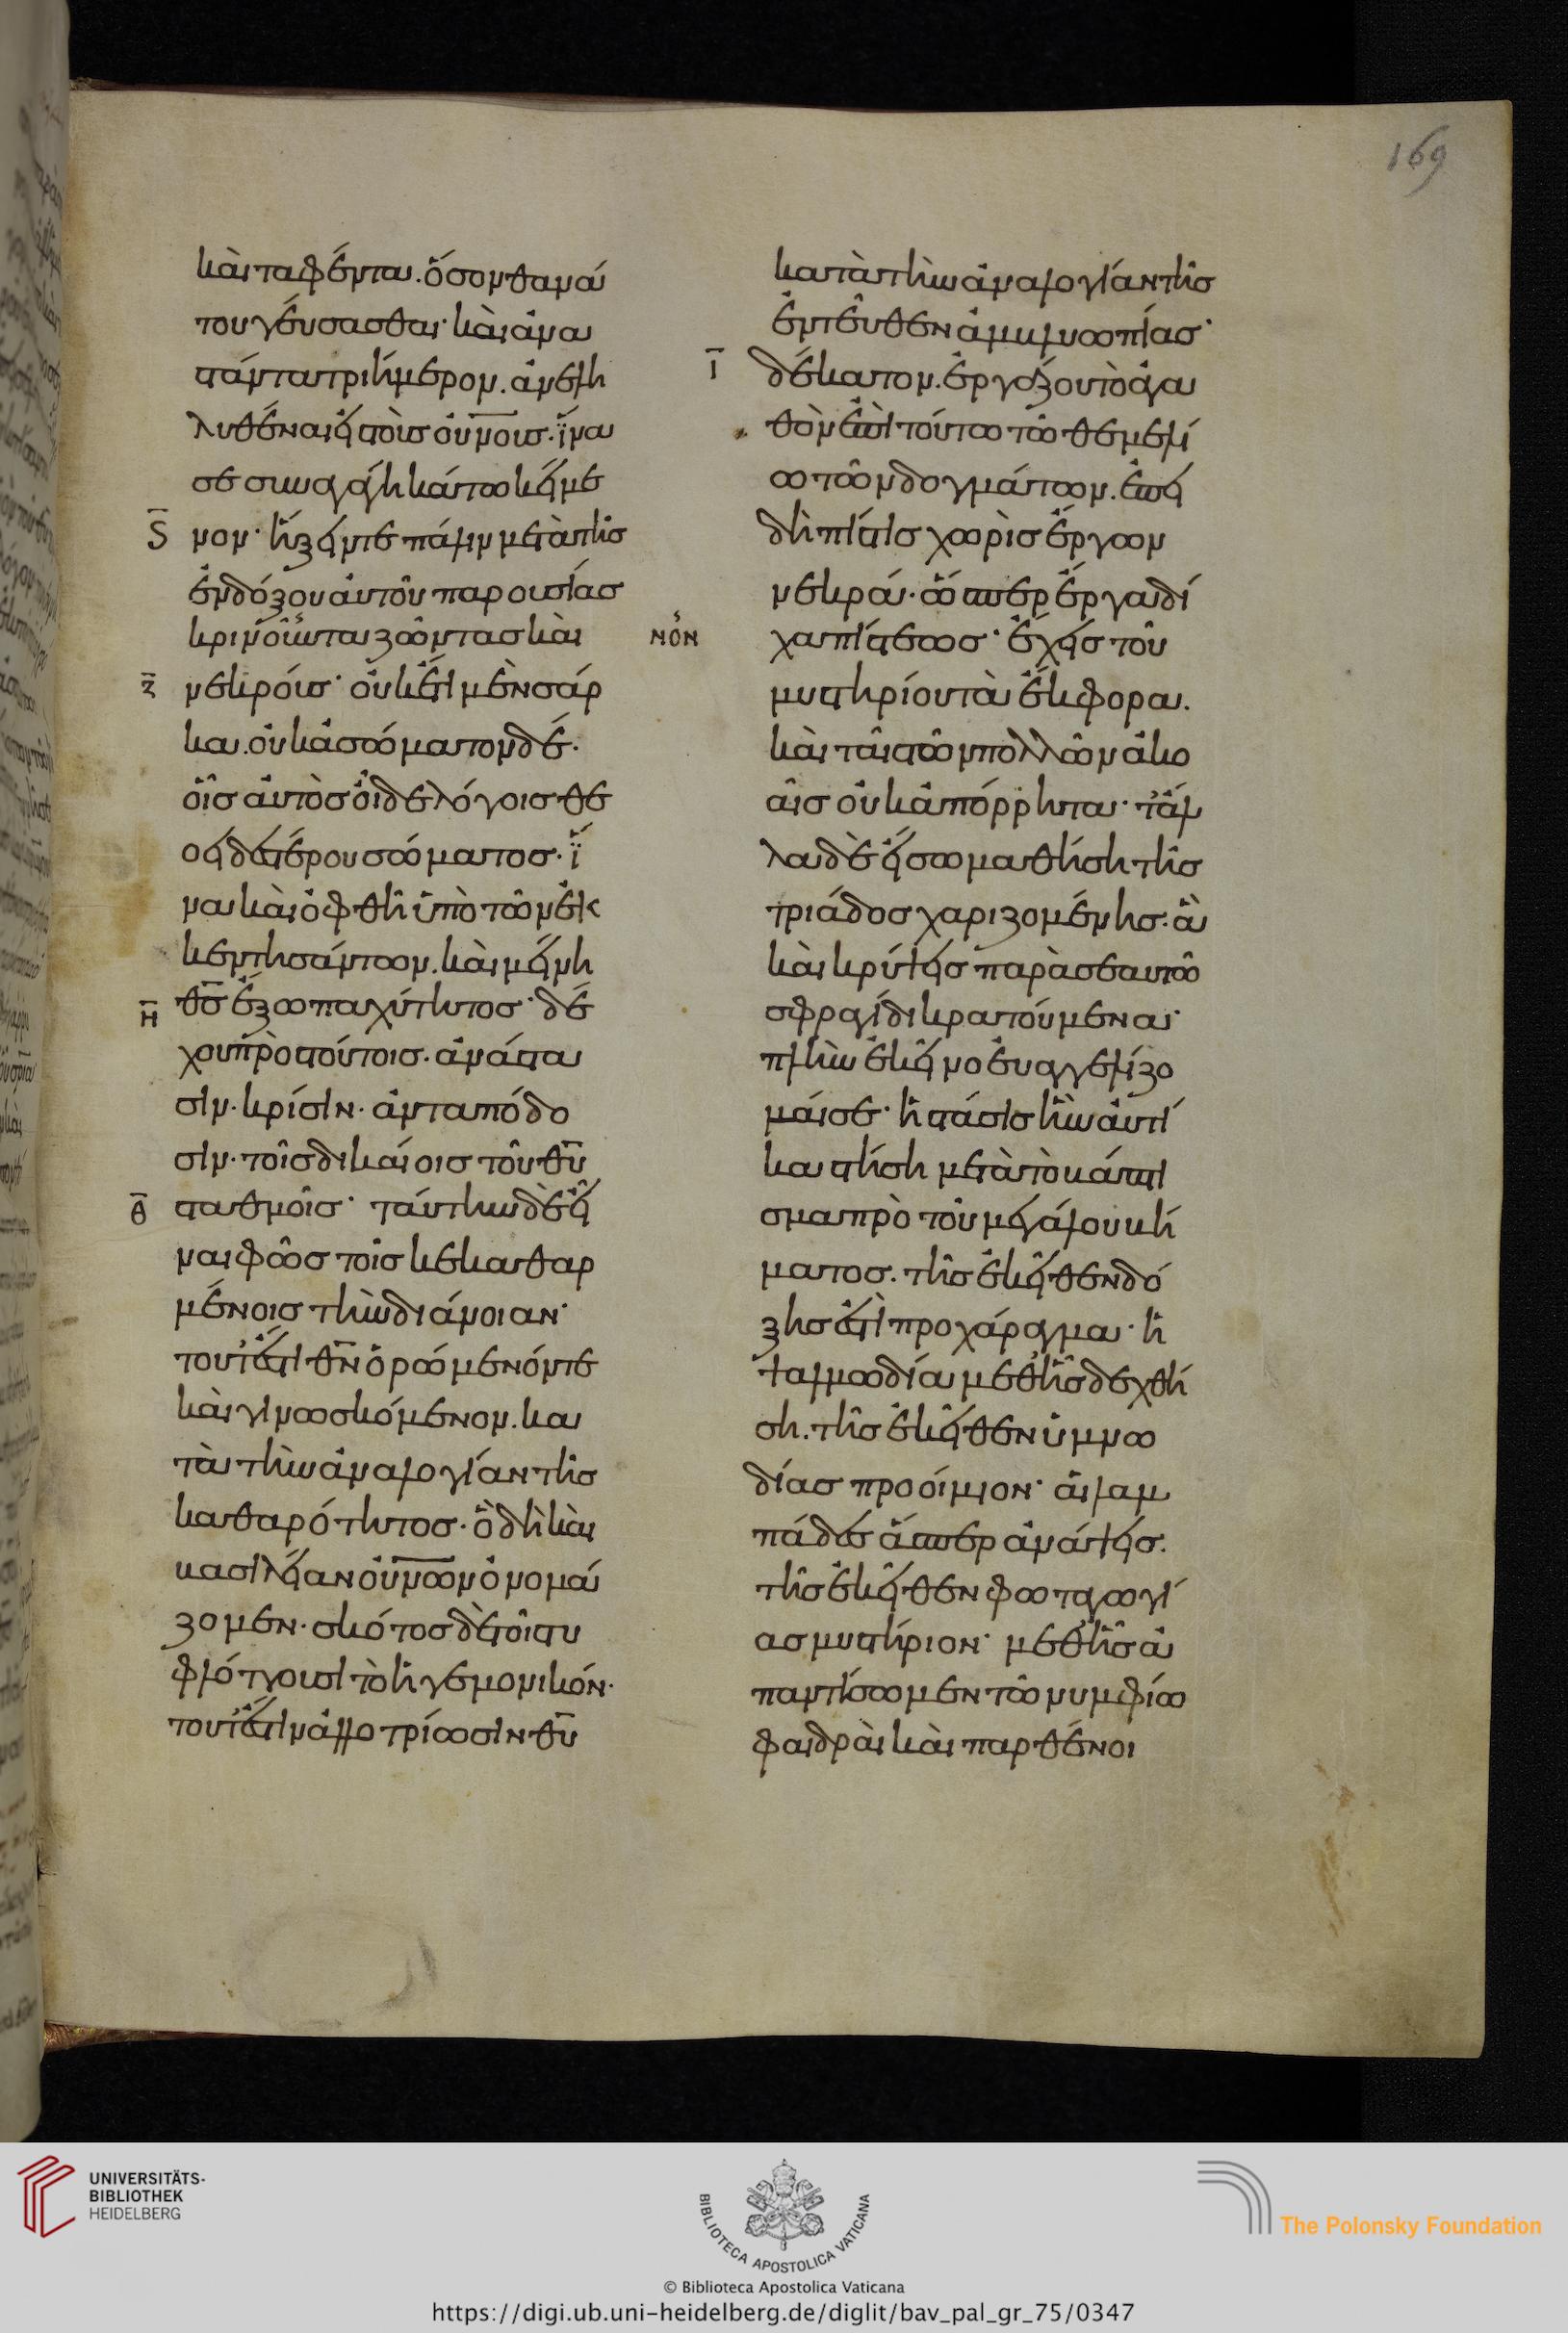 169
καὶ ταφέντα. ὅσον θανά
του γεύσασθαι· καὶ ἀνα
στάντα τριήμερον. ἀνελη
λυθέναι εἰς τοὺς οὐνοὺς. ἵνα
σε συναγάγη κάτω κείμε
ς νον· ἥξειν τε πάλιν μετὰ τῆς
ἐνδόξου αὐτοῦ παρουσίας
κρινοῦντα ζῶντας καὶ
ζ νεκρούς· οὐκέτι μὲν σάρ
κα. οὐκ ἀσώματον δέ·
οἷς αὐτὸς οἶδε λόγοις θε
οειδεστέρου σώματος· ἵ
να καὶ ὀφθῆ ὑπὸ τῶν ἐκ
κεντησάντων. καὶ μείνη
η θς ἔξω παχύτητος· δέ
χου πρὸς τούτοις. ἀνάστα
σιν. κρίσιν. ἀνταπόδο
σιν. τοῖς δικαίοις τοῦ θυ
θ σταθμοῖς· ταύτην δὲ εἶ
ναι φῶς τοῖς κεκαθαρ
μένοις τὴν διάνοιαν·
τουτέστι θν ὁρώμενόν τε
καὶ γινωσκόμενον. κα
τὰ τὴν ἀναλογίαν τῆς
καθαρότητος· ὃ δὴ καὶ
βασιλείαν οὐνῶν ὀνομά
ζομεν. σκότος δὲ τοῖς τυ
φλώττουσι τὸ ἡγεμονικόν·
τουτέστιν ἀλλοτρίωσιν θυ
κατὰ τὴν ἀναλογίαν τῆς
ἐντεῦθεν ἀμβλυωπίας·
ι δέκατον. ἐργάζου τὸ ἀγα
θὸν ἐπὶ τούτω τῶ θεμελί
ω τῶν δογμάτων. ἐπεὶ
δὴ πίστις χωρὶς ἔργων
νεκρά. ὥσπερ ἔργα δί
νον χα πίστεως· ἔχεις τοῦ
μυστηρίου τὰ ἔκφορα.
καὶ ταῖς τῶν πολλῶν ἀκο
αῖς οὐκ ἀπόρρητα· τἄλ
λα δὲ εἴσω μαθήση τῆς
τριάδος χαριζομένης. ἃ
καὶ κρύψεις παρὰ σεαυτῶ
σφραγίδι κρατούμενα·
πλὴν ἐκεῖνο εὐαγγελίζο
μαί σε· ἡ στάσις ἣν αὐτί
κα στήση μετὰ τὸ βάπτι
σμα πρὸ τοῦ μεγάλου βή
ματος. τῆς ἐκεῖθεν δό
ξης ἐστὶ προχάραγμα. ἡ
ψαλμωδία μεθ' ἧς δεχθή
ση. τῆς ἐκεῖθεν ὑμνω
δίας προοίμιον· αἱ λαμ
πάδες ἅσπερ ἀνάψεις.
τῆς ἐκεῖθεν φωταγωγί
ας μυστήριον· μεθ' ἧς ἀ
παντήσωμεν τῶ νυμφίω
φαιδραὶ καὶ παρθένοι
UNIVERSITÄTS-
BIBLIOTHEK
HEIDELBERG
BIBLIOTECA APOSTOLICA VATICANA
The Polonsky Foundation
© Biblioteca Apostolica Vaticana
https://digi.ub.uni-heidelberg.de/diglit/bav_pal_gr_75/0347